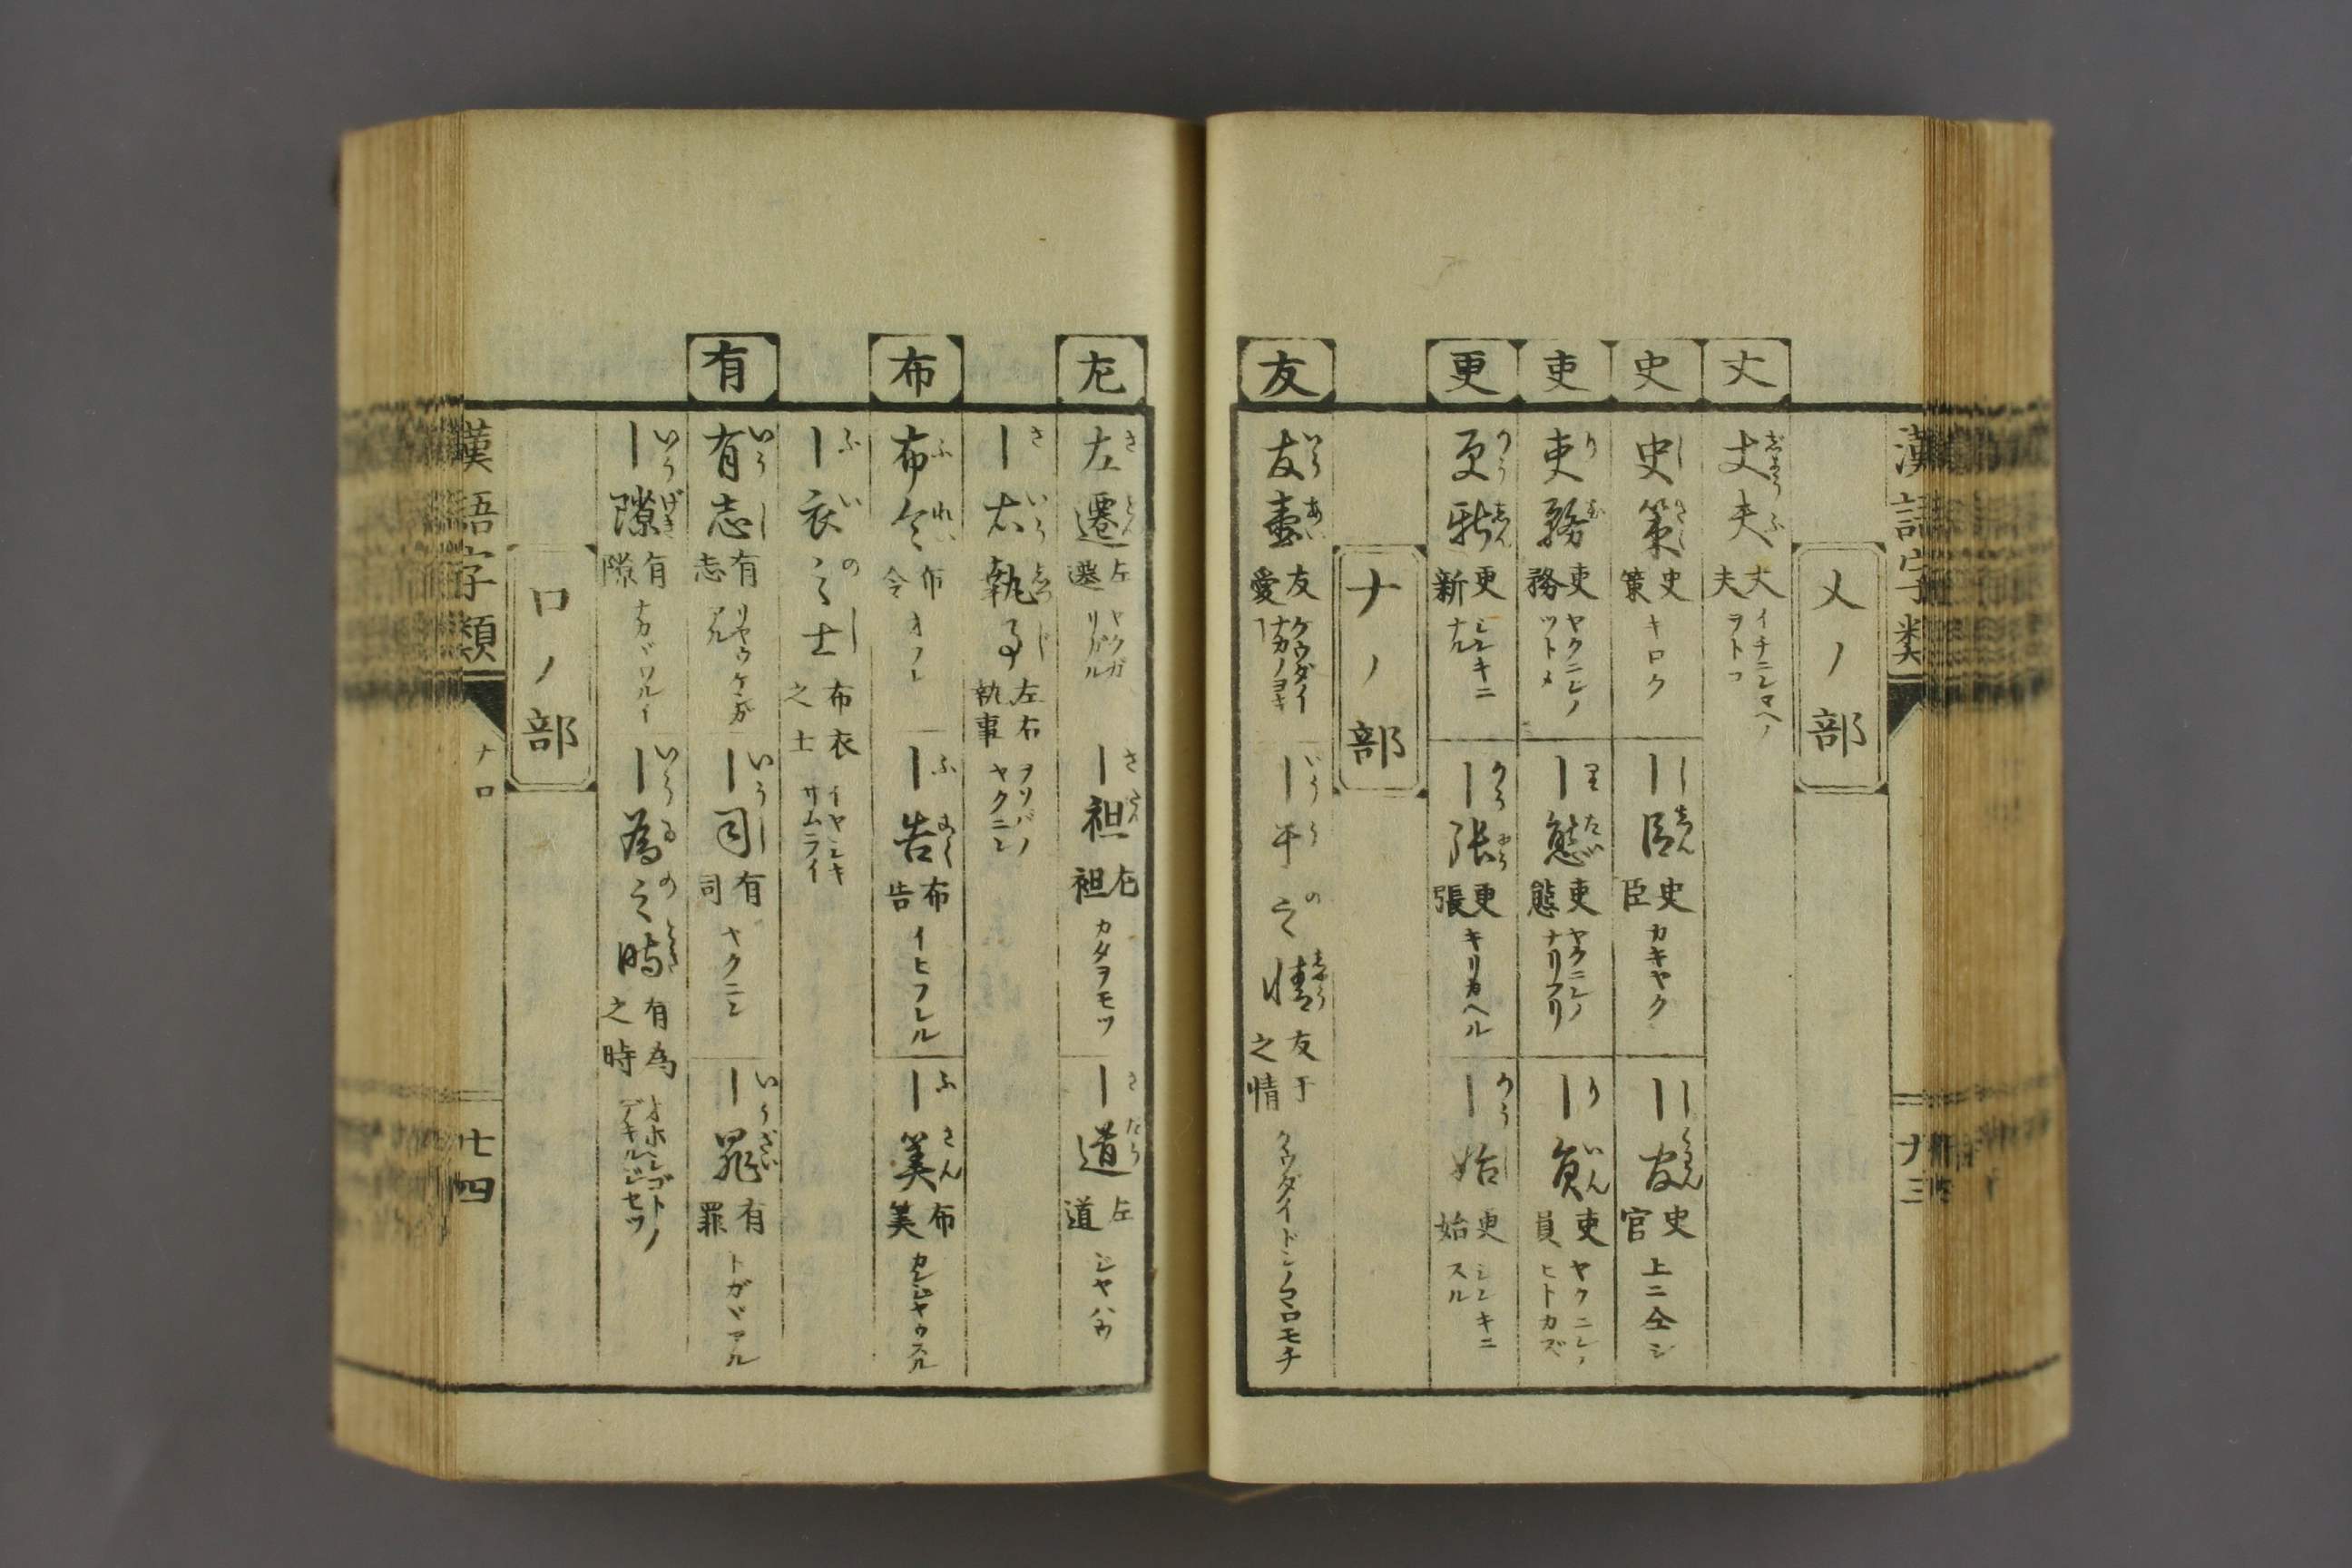 漢語字類
乂ノ部
丈
丈夫 丈夫 イチニンマヘノヲトコ
史
史策 史策 キロク
｜臣 史臣 カキヤク
｜官 史官 上ニ仝シ
吏
吏務 吏務 ヤクニンノツトメ
｜態 吏態 ヤクニンノナリフリ
｜員 吏員 ヤクニンノヒトカズ
更
更新 更新 シンキニナル
｜張 更張 キリカヘル
｜始 更始 シンキニスル
ナノ部
友
友愛 友愛 ケウダイナカノヨキ
｜于之情 友于之情 ケウダイドシノココロモチ
左
左遷 左遷 ヤクガリサガル
｜袒 左袒 カタヲモツ
｜道 左道 シヤハウ
｜右執事 左右執事 ヲソバノヤクニン
布
布令 布令 オフレ
｜告 布告 イヒフレル
｜筭 布筭 カンジヤウスル
｜衣之士 布衣之士 イヤシキサムライ
有
有志 有志 リヤウケンガアル
｜司 有司 ヤクニン
｜罪 有罪 トガガアル
｜隙 有隙 ナカガワルイ
｜為之時 有為之時 オホヘシゴトノデキルジセツ
口ノ部
漢語字類
ナ口
七四